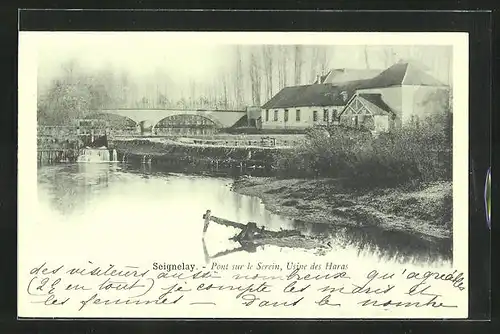 Seignelay. - Pont sur le Serein, Usine des Haras
des visiteurs aussi nombreux qu'agréables
(22 en tout) je compte les maris et
les femmes - Dans le nombre